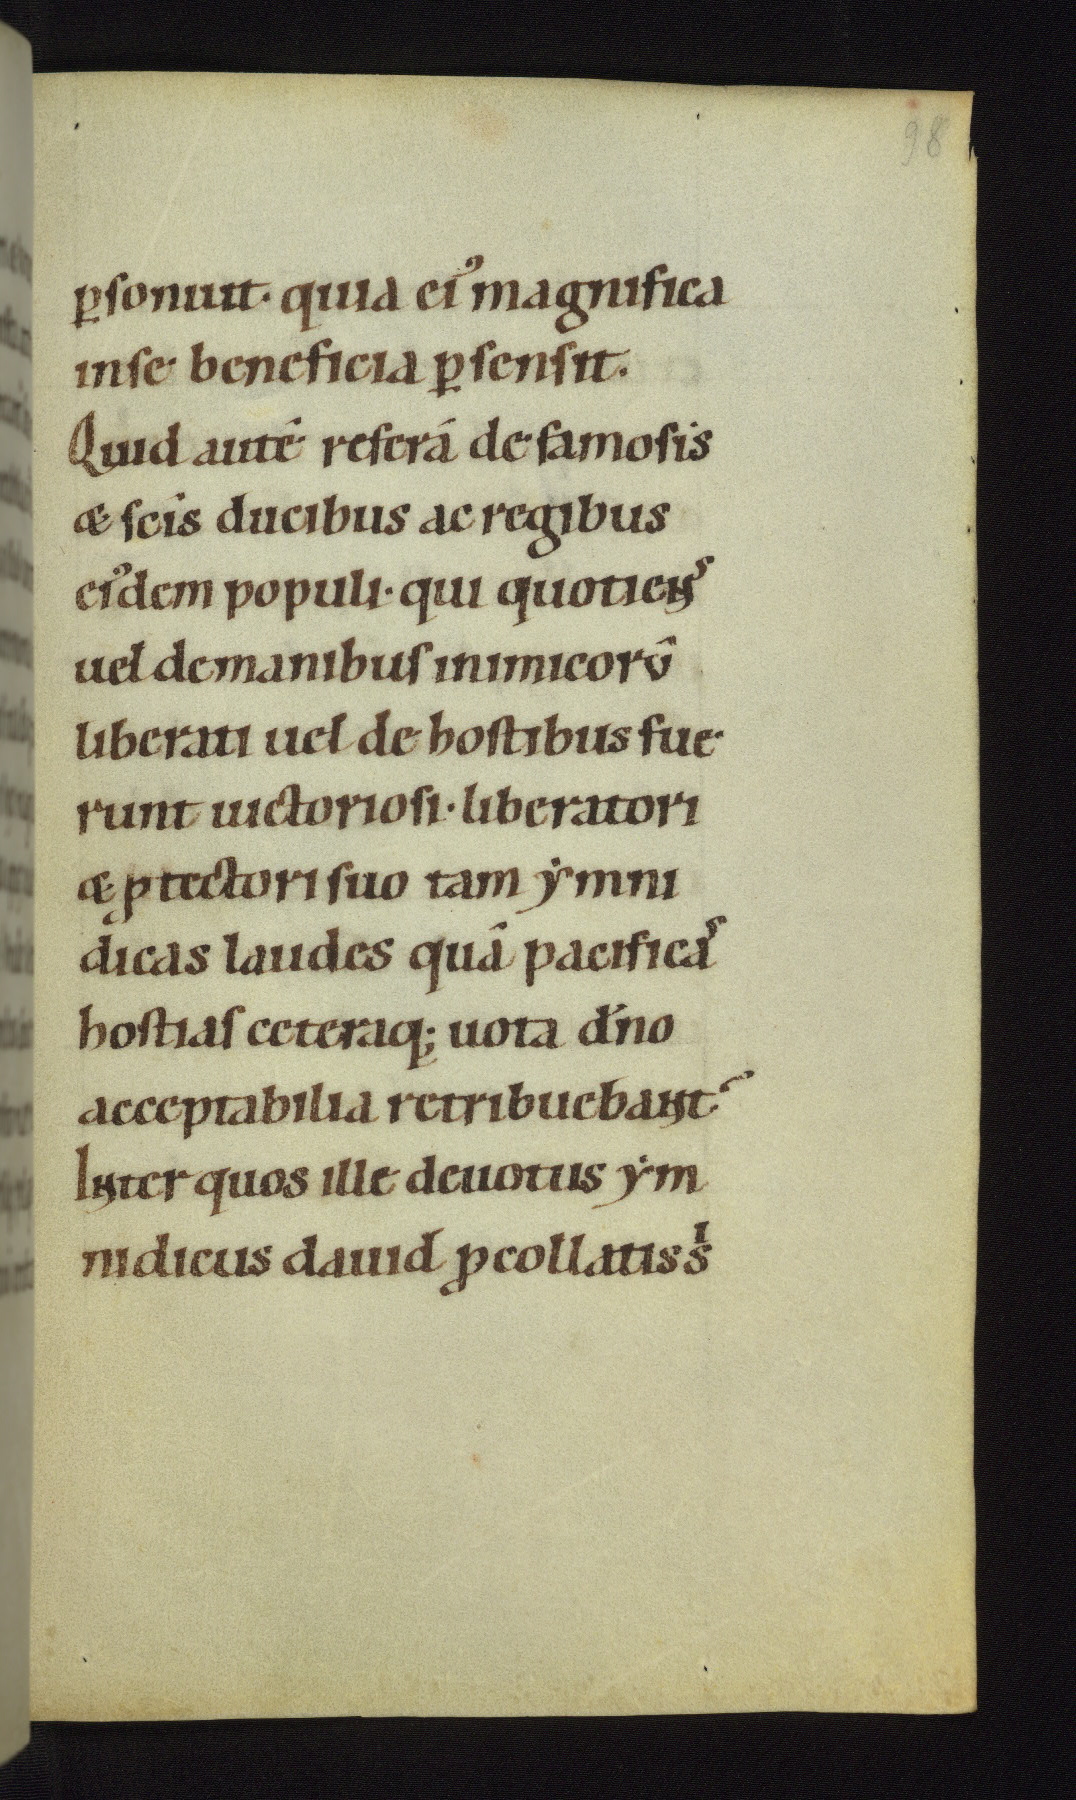 98
ꝑſonuit· quia ei᷒ magnifica
inſe beneficia ꝑſenſit.
Quid autē referā de famoſis
& ſc̄is ducibus ac regibus
ei᷒dem populi· qui quotiens
uel demanibuſ inimicorū
liberati uel de hoſtibus fue
runt uictorioſi· liberatori
& ꝓtectori ſuo tam ẏmni
dicas laudes quā pacificas
hoſtiaſ ceteraq; uota dn̄o
acceptabilia retribuebant᷑
Inter quos ille deuotus ẏm
nidicus dauid ꝓcollatis s